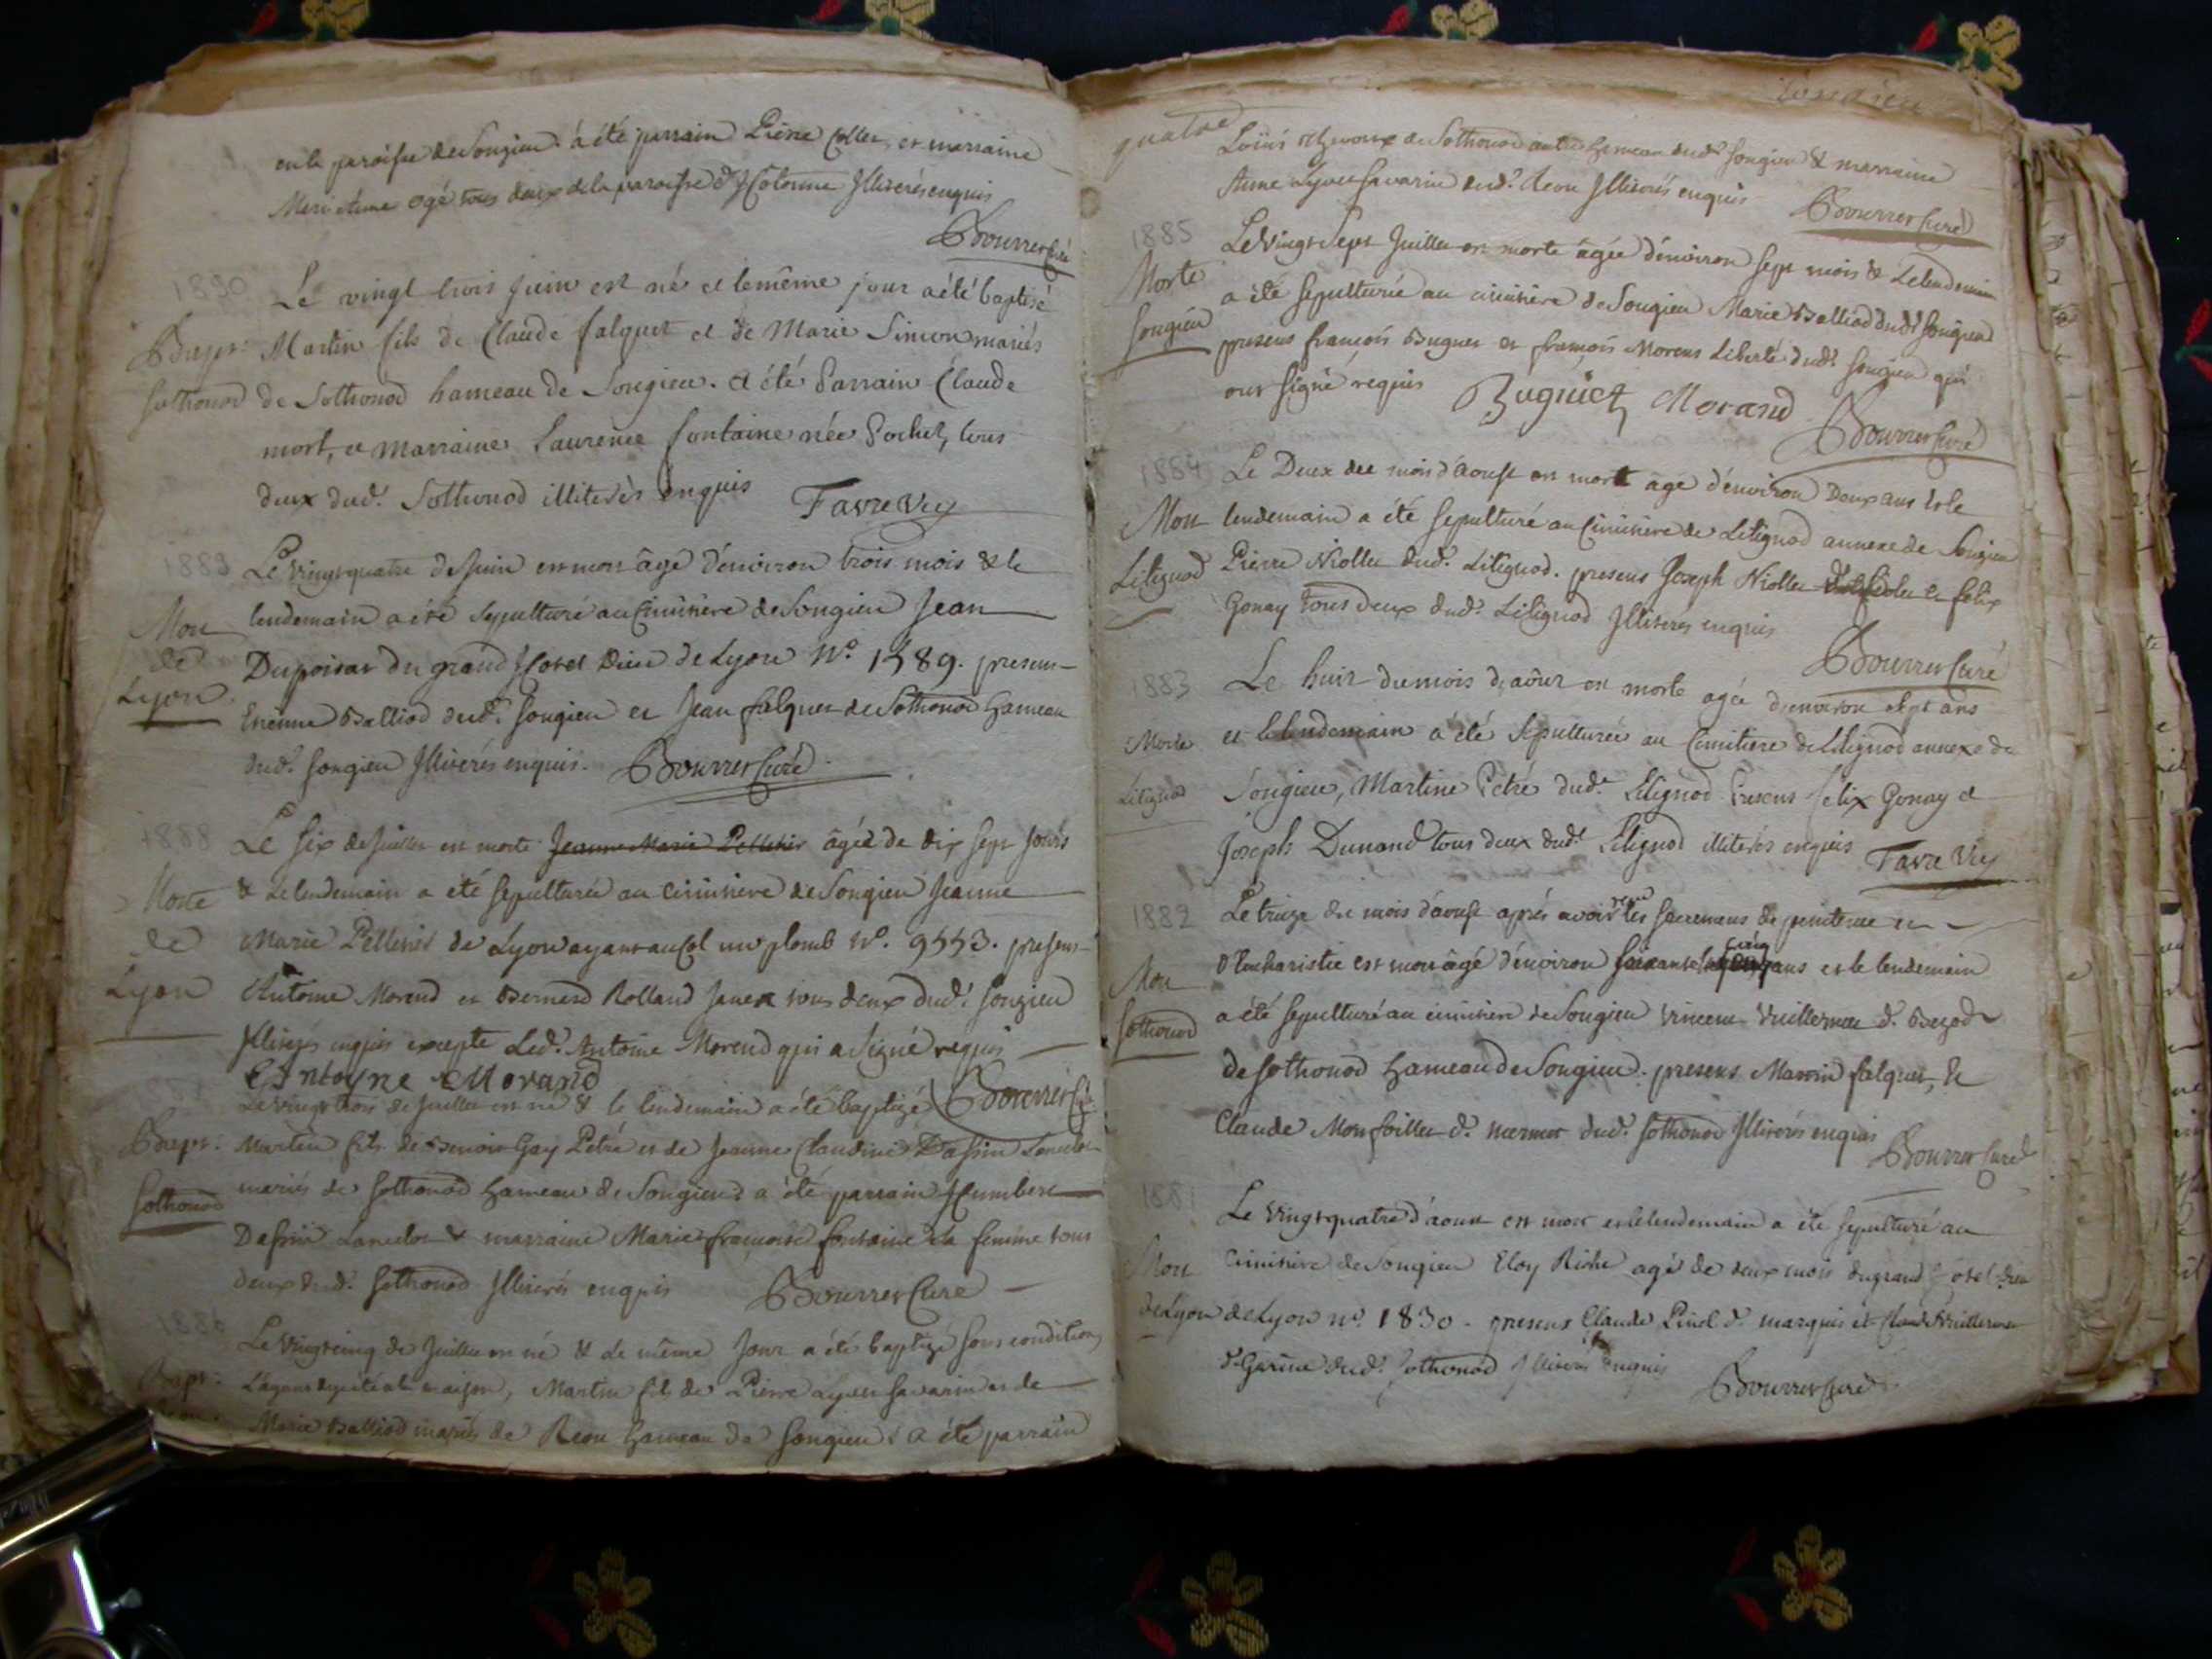 en la paroisse de Songieu. a été parrain Pierre Collet, et marraine
Meri Anne ogé tous deux de la paroisse d'hotonne Illiterés enquis
Bourret Curé
1890
Le vingt trois juin est né et le même jour a été baptisé
Bapt:
Martin fils de Claude falquet et de Marie Simon mariés
Sothonod
de Sothonod hameau de Songieu. a été Parrain Claude
mort, et marraine Laurence fontaine née Pochet, tous
deux dud. Sothonod illiterés enquis
Favre Viç
1889
Le vingt quatre de juin est mort âgé d'environ trois mois & le
Mort
lendemain a été sepulturé au Cimitière de Songieu Jean
de
Dupoisat du grand Hotel Dieu de Lyon N.º 1589. presens
Lyon
Etienne Balliod dud. Songieu et Jean falquet de Sothonod hameau
dud. Songieu Illiterés enquis. Bourret Curé
1888
Le six de juillet est morte Jeanne Marie Pelletier âgée de dix sept jours
Morte
& le lendemain a été sepulturée au cimitière de Songieu Jeanne
de
Marie Pelletier de Lyon ayant au Col un plomb N.º 9553. presens
Lyon
Antoine Morand et Bernard Rolland Janet tous deux dud. Songieu
Illiterés enquis excepte Led. Antoine Morand qui a signé requis
Antoyne Morand
Bourret Curé
Le vingt trois de juillet est né & le lendemain a été baptizé
Bapt:
Martin fils de Benoit Gay Petré et de Jeanne Claudine Dassin Lancelot
Sothonod
mariés de Sothonod hameau de Songieu a été parrain Humbert
Dassin Lancelot & marraine Marie françoise fontaine sa femme tous
deux dud. Sothonod Illiterés enquis Bourret Curé
1886
Le vingt cinq de juillet est né & le même jour a été baptizé sous condition
Bapt:
l'ayant deja été à la maison, Martin fils de Pierre Savarin et de
Marie Balliod mariés de Reou hameau de Songieu a été parrain
quatre
Songieu
Louis de Sothonod autre hameau dud. Songieu & marraine
Anne Savarin dud. Reou Illiterés enquis
Bourret Curé
1885
Le vingt sept Juillet est morte âgée d'environ sept mois & le lendemain
Morte
a été sepulturée au cimitière de Songieu Marie Balliod dud. Songieu
Songieu
presens françois Buguet et françois Morens Liberté dud. Songieu qui
ont signé requis
Buguiet Morand
Bourret Curé
1884
Le Deux du mois d'aoust est mort agé d'environ Deux ans & le
Mort
lendemain a été sepulturé au Cimitière de Litignod annexe de Songieu
Litignod
Pierre Niollet dud. Litignod. presens Joseph Niollet et felix
Gonay tous deux dud. Litignod Illiterés enquis
Bourret Curé
1883
Le huit du mois d'août est morte agée d'environ sept ans
Morte
et le lendemain a été sepulturée au Cimitiere de Litignod annexe de
Litignod
Songieu, Martine Petré dud. Litignod Presens felix Gonay et
Joseph Dunand tous deux dud. Litignod illiterés enquis
Favre Viç
1882
Le treize du mois d'aoust après avoir reçu les sacremens de penitence et
Mort
d'Eucharistie est mort âgé d'environ soixante cinq ans et le lendemain
Sothonod
a été sepulturé au cimitière de Songieu Vincent Vuillermet d.
de Sothonod hameau de Songieu. presens Martin falquet, &
Claude Monfoillet d. mermet dud. Sothonod Illiterés enquis
Bourret Curé
1881
Le vingt quatre d'aoust est mort et le lendemain a été sepulturé au
Mort
Cimitière de Songieu Eloy Riche agé de deux mois du grand hotel Dieu
de Lyon
de Lyon n.º 1830. presens Claude Pinel d. marquis et Claude Vuillermet
d. Garine dud. Sothonod Illiterés enquis
Bourret Curé